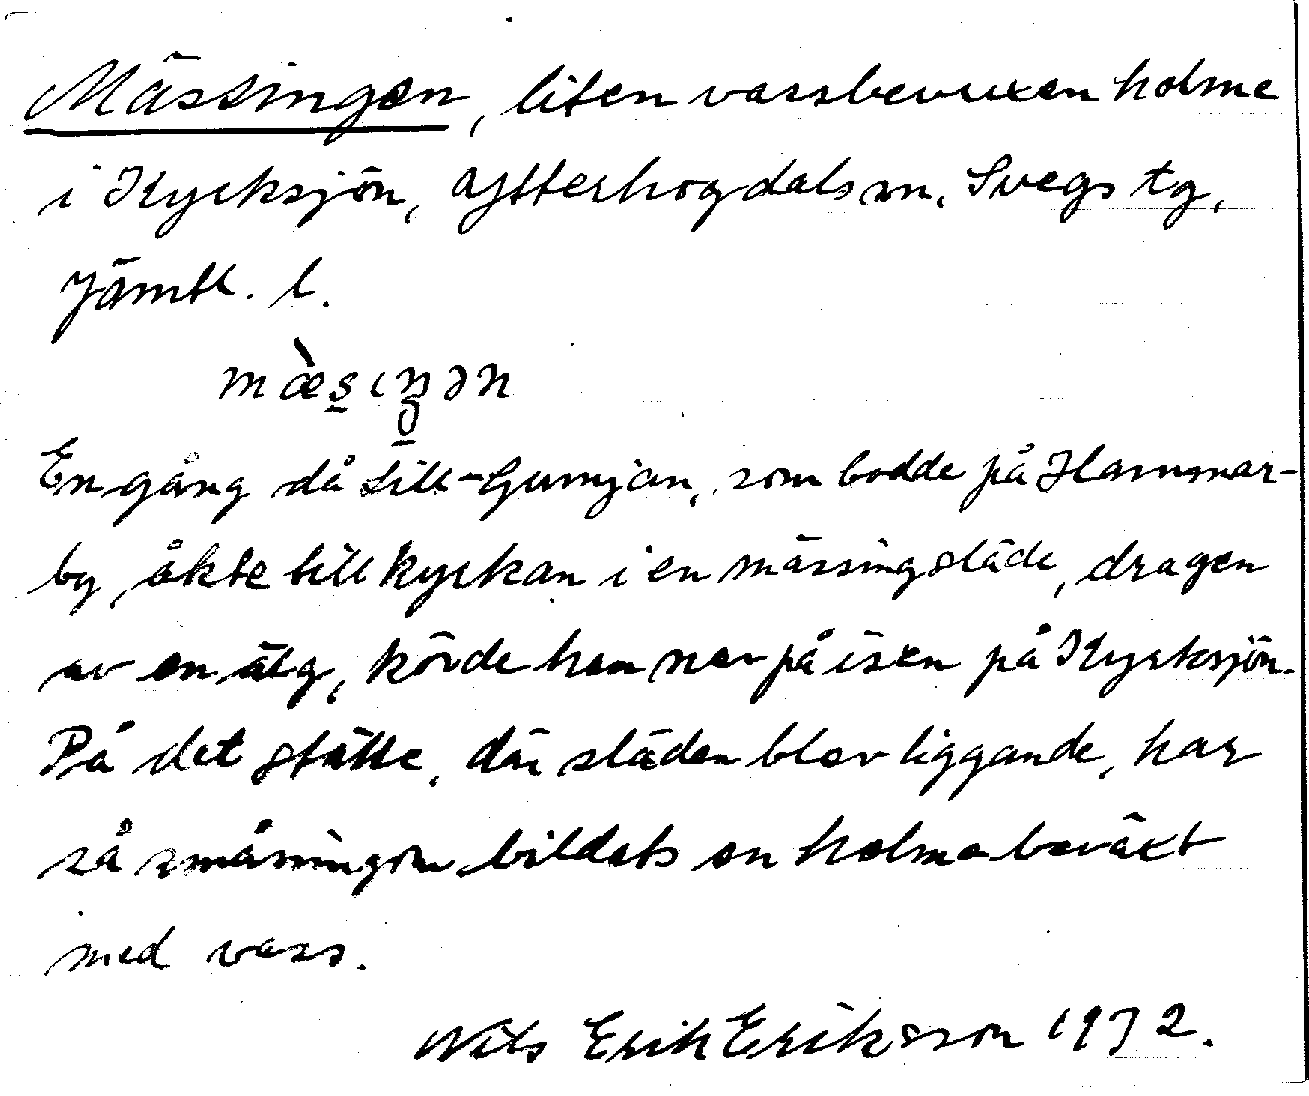 Mässingen, liten vassbevuxen holme
i Kyrksjön, Ytterhogdals sn. Svegs tg,
Jämtl. l.
En gång då Lill-Gunnjan, som bodde på Hammar-
by, åkte till kyrkan i en mässingsläde, dragen
av en älg, körde han ner på isen på Kyrksjön.
På det ställe, där släden blev liggande, har
så småningom bildats en holme beväxt
med vass.
Nils Erik Eriksson 1932.